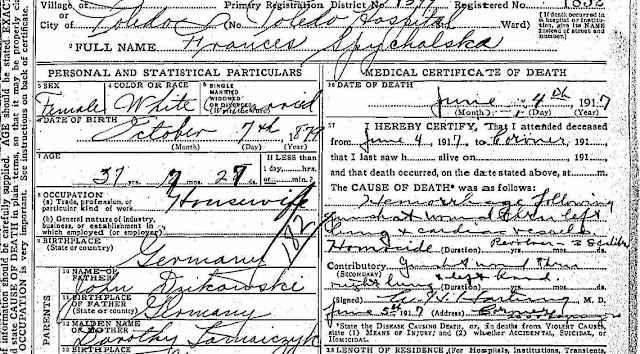 Village of
or
City of Toledo No. Toledo Hospital St. Ward)
Primary Registration District No. 1377 Registered No. 1832
(If death occurred in a hospital or institution, give its NAME instead of street and number.
2 FULL NAME Frances Spychalska
PERSONAL AND STATISTICAL PARTICULARS
3 SEX Female
4 COLOR OR RACE White
5 SINGLE MARRIED WIDOWED OR DIVORCED (Write the word)
6 DATE OF BIRTH
October 7th, 1879
(Month) (Day) (Year)
7 AGE
37 yrs. mos. ds.
If LESS than
1 day, hrs.
or min.?
8 OCCUPATION
(a) Trade, profession, or
particular kind of work Housewife
(b) General nature of industry,
business, or establishment in
which employed (or employer)
182
9 BIRTHPLACE
(State or country) Germany
PARENTS
10 NAME OF
FATHER John Dzikowski
11 BIRTHPLACE
OF FATHER
(State or country) Germany
12 MAIDEN NAME
OF MOTHER Dorothy
13 BIRTHPLACE
MEDICAL CERTIFICATE OF DEATH
16 DATE OF DEATH
June 4th 1917
(Month) (Day) (Year)
17 I HEREBY CERTIFY, That I attended deceased
from June 4 1917, to Coroner, 191
that I last saw h alive on 191
and that death occurred, on the date stated above, at m.
The CAUSE OF DEATH* was as follows:
Hemorrhage following
gunshot wound thru left
lung & cardiac vessels
Homicide (Duration) Revolver
Contributory Gunshot wound thru
(SECONDARY)
right lung & left hand
(Duration)
(Signed) M. D.
June 5th 1917 (Address)
*State the DISEASE CAUSING DEATH, or, in deaths from VIOLENT CAUSES,
state (1) MEANS OF INJURY; and (2) whether ACCIDENTAL, SUICIDAL, or
HOMICIDAL.
18 LENGTH OF RESIDENCE (For Hospitals, Institutions, Transients,
of information should be carefully applied. AGE should be stated EXACT
state CAUSE OF DEATH in plain terms, so that it may be properly
OCCUPATION is very important. See instructions on back of certificate.